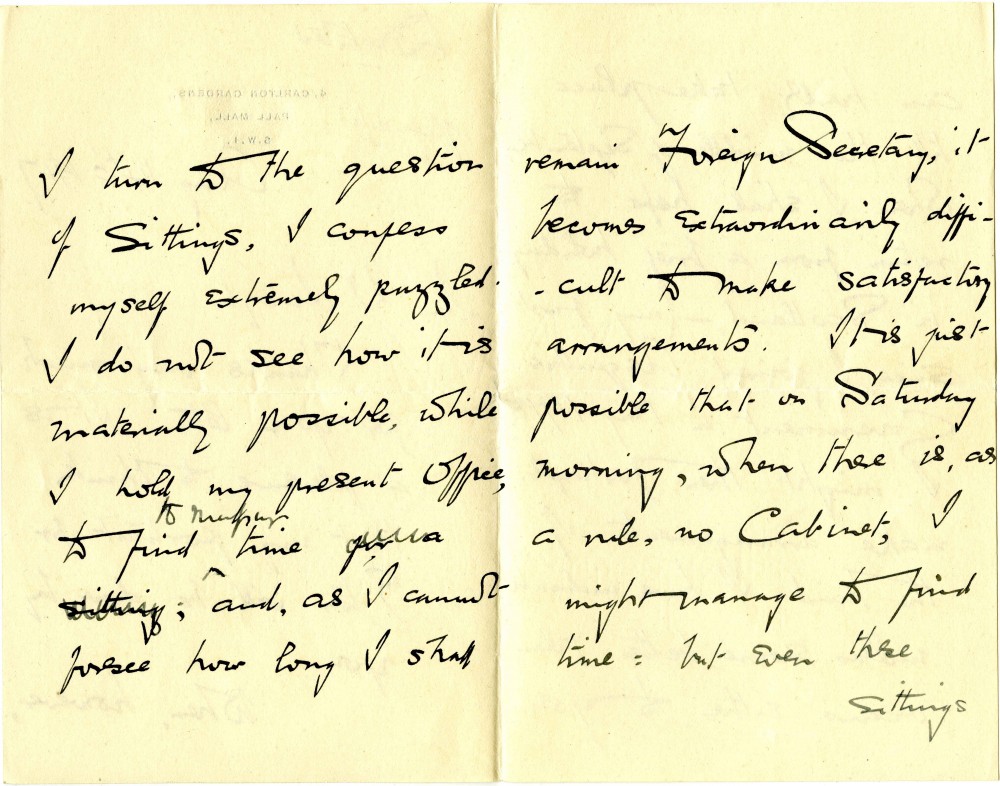 I turn to the question
of Sittings, I confess
myself extremely puzzled.
I do not see how it is
materially possible, while
I hold my present Office,
to
to find time for a
sitting; and, as I cannot
forsee how long I shall
remain Foreign Secretary, it
becomes extraordinarily diffi-
-cult to make satisfactory
arrangements. It is just
possible that on Saturday
morning, when there is, as
a rule, no Cabinet, I
might manage to find
time: but even these
sittings
4, CARLTON GARDENS,
PALL MALL,
S.W.1.